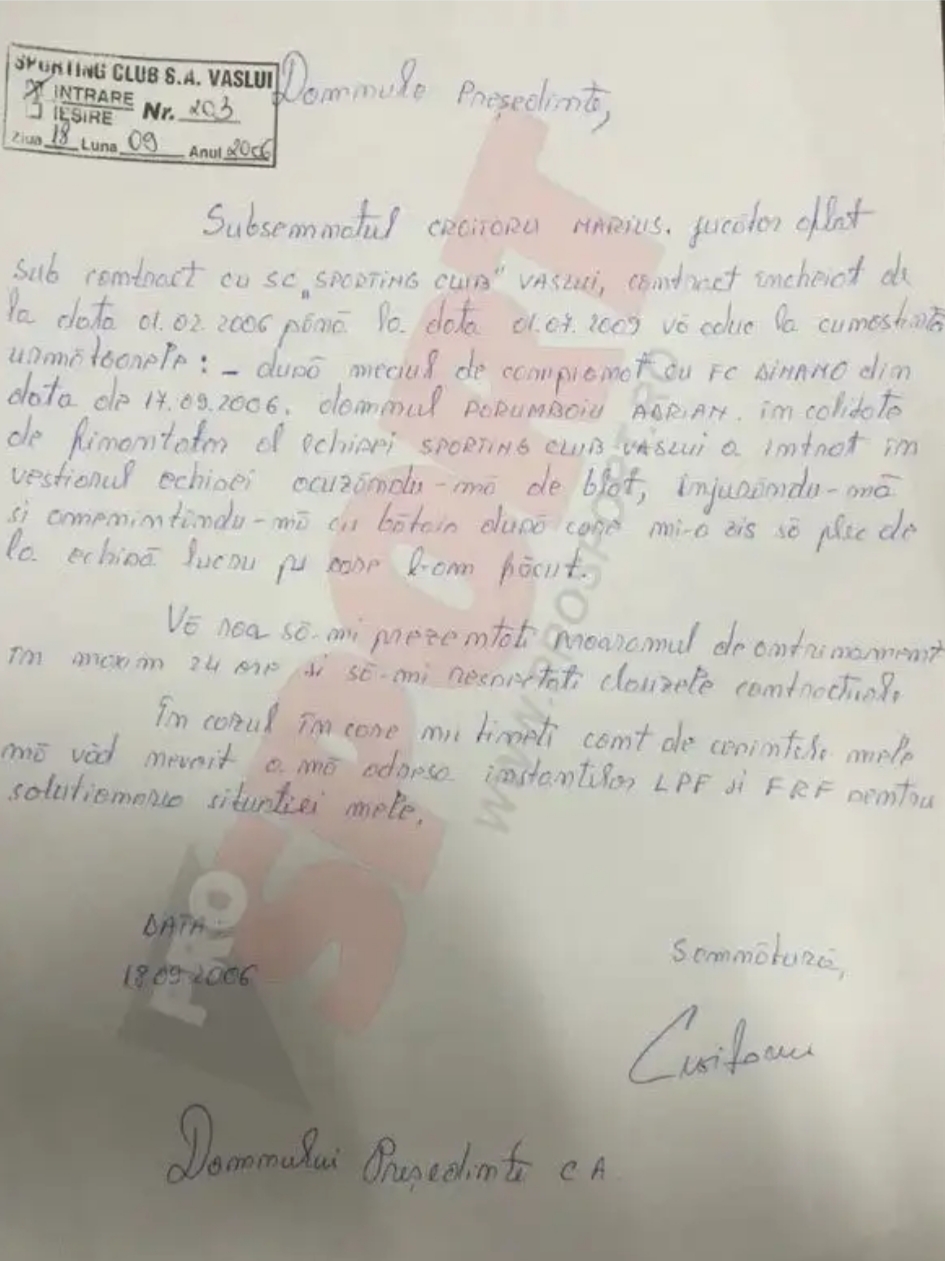 SPORTING CLUB S.A. VASLUI
INTRARE
IESIRE Nr. 203
Ziua 18 Luna 09 Anul 2006
Domnule Președinte,
Subsemnatul CROITORU MARIUS. jucător aflat
sub contract cu SC „SPORTING CLUB" VASLUI, contract încheiat de
la data 01.02.2006 până la data 01.07.2009 vă aduc la cunostință
următoarele: - după meciul de campionat cu FC DINAMO din
data de 17.09.2006. domnul PORUMBOIU ADRIAN. în calitate
de finantator al echipei SPORTING CLUB VASLUI a intrat în
vestiarul echipei acuzându-mă de blat, înjurându-mă
si amenintându-mă cu bătaia după care mi-a zis să plec de
la echipă lucru pe care l-am făcut.
Vă rog să-mi prezentati programul de antrenament
în maxim 24 ore si să-mi respectati clauzele contractuale
În cazul în care nu tineti cont de cerintele mele
mă văd nevoit a mă adresa instantelor LPF si FRF pentru
solutionarea situatiei mele.
DATA:
18.09.2006
Semnătura,
Croitoru
Domnului Președinte C A
PRO
SPORT
WWW.PROSPORT.RO